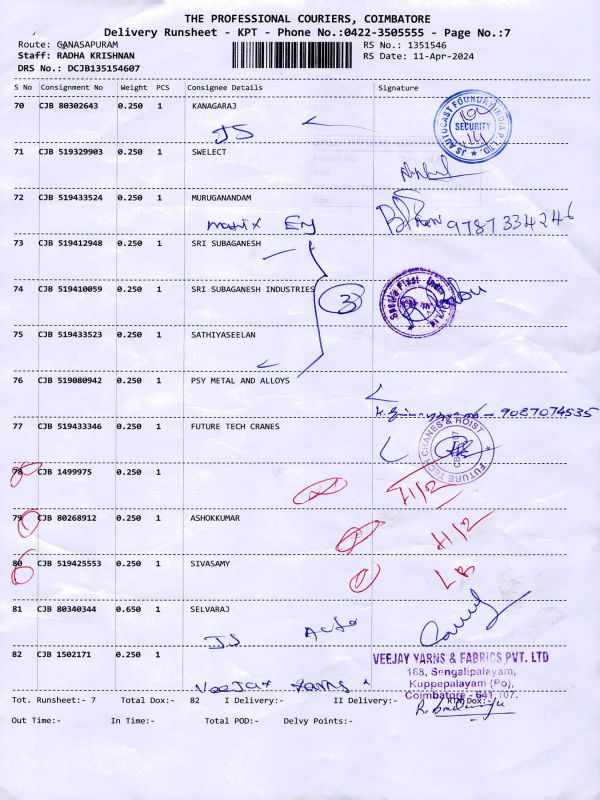 THE PROFESSIONAL COURIERS, COIMBATORE
Delivery Runsheet - KPT - Phone No.:0422-3505555 - Page No.:7
Route: GANASAPURAM
Staff: RADHA KRISHNAN
DRS No.: DCJB135154607
RS No.: 1351546
RS Date: 11-Apr-2024
S No Consignment No Weight PCS Consignee Details Signature
70 CJB 80302643 0.250 1 KANAGARAJ
JS
JS AUTOCAST FOUNDRY INDIA P. LTD. SECURITY
71 CJB 519329903 0.250 1 SWELECT
72 CJB 519433524 0.250 1 MURUGANANDAM
matrix Eng
9787334246
73 CJB 519412948 0.250 1 SRI SUBAGANESH
74 CJB 519410059 0.250 1 SRI SUBAGANESH INDUSTRIES
3
75 CJB 519433523 0.250 1 SATHIYASEELAN
76 CJB 519080942 0.250 1 PSY METAL AND ALLOYS
- 9087074535
77 CJB 519433346 0.250 1 FUTURE TECH CRANES
FUTURE TECH CRANES & HOIST
78 CJB 1499975 0.250 1
79 CJB 80268912 0.250 1 ASHOKKUMAR
80 CJB 519425553 0.250 1 SIVASAMY
81 CJB 80340344 0.650 1 SELVARAJ
JS Auto
82 CJB 1502171 0.250 1
Veejay Yarns
VEEJAY YARNS & FABRICS PVT. LTD
168, Sengalipalayam,
Kuppepalayam (Po),
Coimbatore - 641 107.
Tot. Runsheet:- 7 Total Dox:- 82 I Delivery:- II Delivery:- RTN Dox:-
Out Time:- In Time:- Total POD:- Delvy Points:-